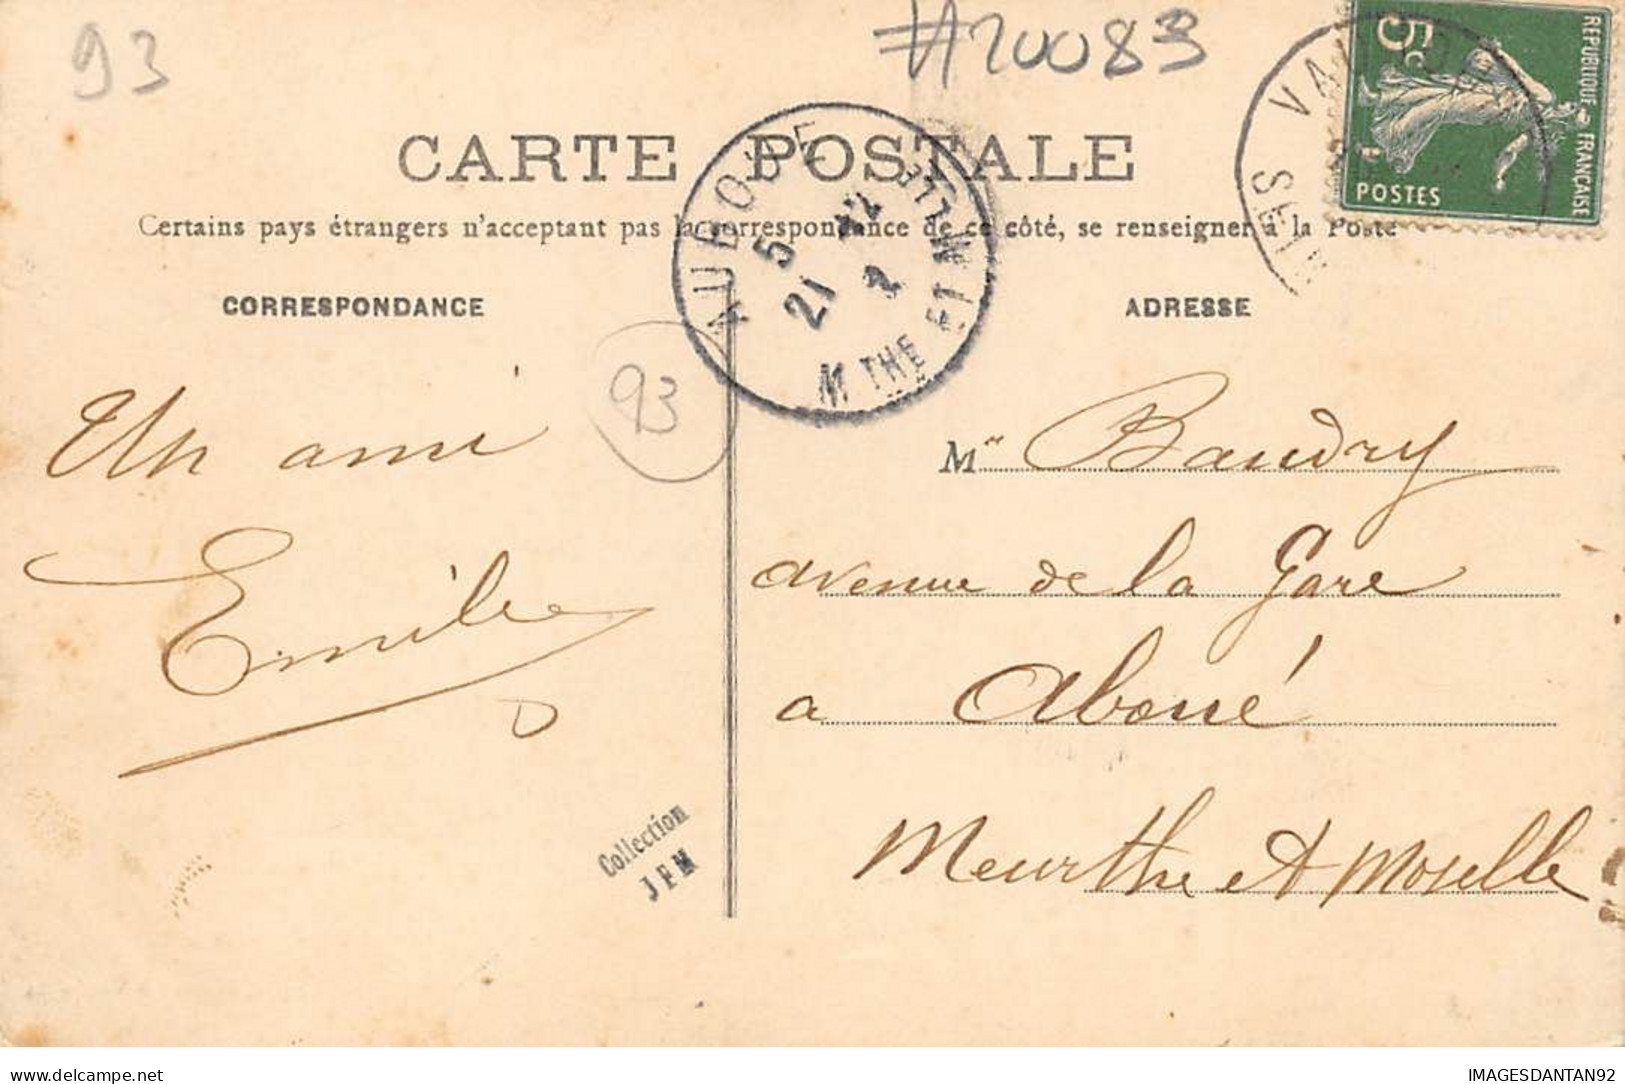 93
#20083
5c
REPUBLIQUE FRANÇAISE
POSTES
CARTE POSTALE
Certains pays étrangers n'acceptent pas la correspondance de ce côté, se renseigner à la Poste
AUBOUE
5
21 2
12
MTHE ET MLLE
CORRESPONDANCE
ADRESSE
93
Un ami
Emile
Mr Baudry
avenue de la Gare
a Aboué
Meurthe et Moselle
Collection
JFM
delcampe.net
IMAGESDANTAN92